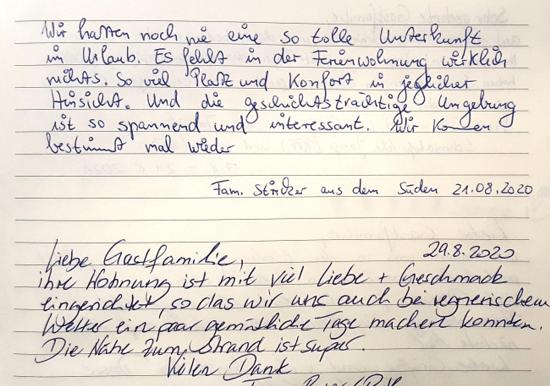 Wir hatten noch nie eine so tolle Unterkunft
im Urlaub. Es fehlt in der Ferienwohnung wirklich
nichts. So viel Platz und Konfort in jeglicher
Hinsicht. Und die geschichtsträchtige Umgebung
ist so spannend und interessant. Wir kommen
bestimmt mal wieder
Fam. aus dem Süden 21.08.2020
Liebe Gastfamilie, 29.8.2020
ihre Wohnung ist mit viel Liebe + Geschmack
eingerichtet, so das wir uns auch bei regnerischem
Wetter ein paar gemütliche Tage machen konnten.
Die Nähe zum Strand ist super.
Vielen Dank